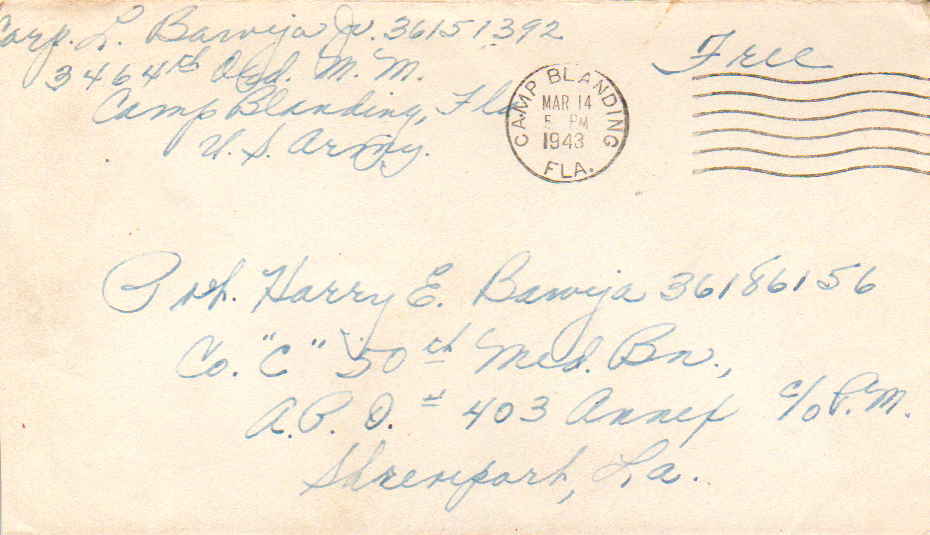 Corp. L. Baweja Jr. 36151392
3464th Ord. M. M.
Camp Blanding, Fla
U. S. Army.
Free
CAMP BLANDING
MAR 14
5 PM
1943
FLA.
Pvt. Harry E. Baweja 36186156
Co. "C" 50th Med. Bn.,
A.P.O. # 403 Annex c/o P.M.
Shreveport, La.